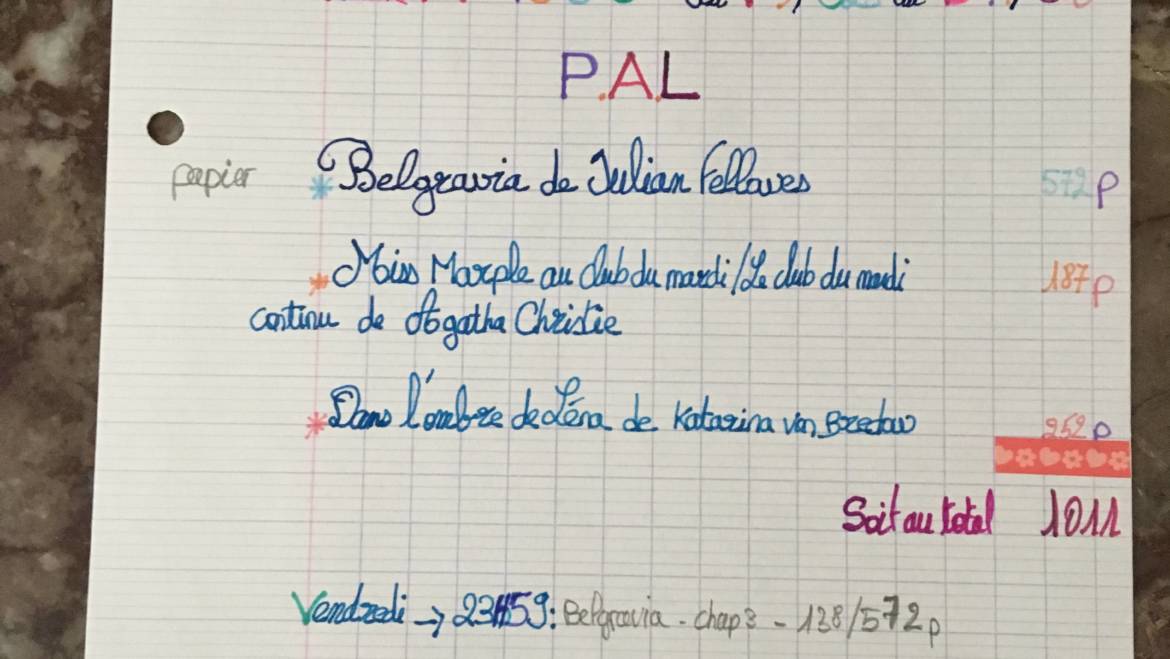 P.A.L
papier * Belgravia de Julian Fellowes 572 p
* Miss Marple au club du mardi/Le club du mardi 187 p
continu de Agatha Christie
* Dans l'ombre de Léna de Katarina von Bredow 252 p
Soit au total 1011
Vendredi → 23H59: Belgravia - chap 3 - 138/572 p